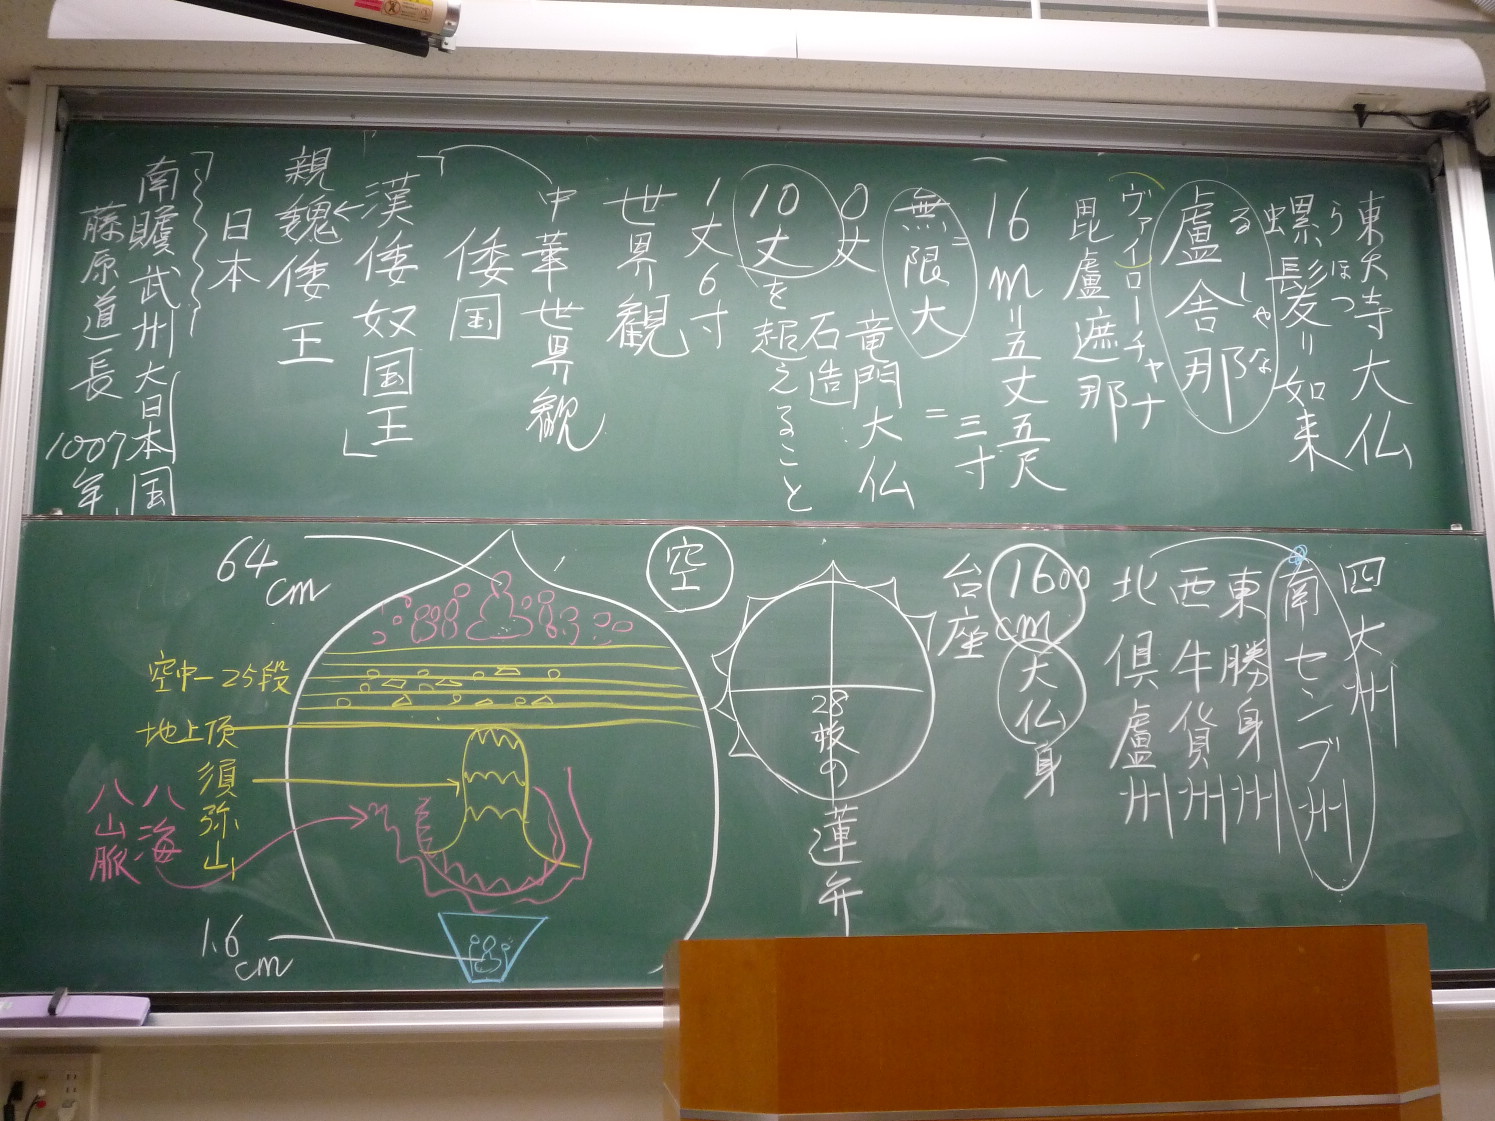 東大寺大仏
うほつ
螺髪リ如来
るしゃな
盧舎那
ヴァイローチャナ
毘盧遮那
16m=五丈五尺
=三寸
無限大
竜門大仏
石造
0丈
10丈を超えること
1丈6寸
世界観
中華世界観
倭国
漢倭奴国王
親魏倭王
日本
南贍武州大日本国
藤原道長 1007年
四大州
南センブ州
東勝身州
西牛貨州
北倶盧州
1600cm
大仏身
台座
28枚の蓮弁
空
64cm
空中-25段
地上頂
須弥山
八海
八山脈
1.6cm